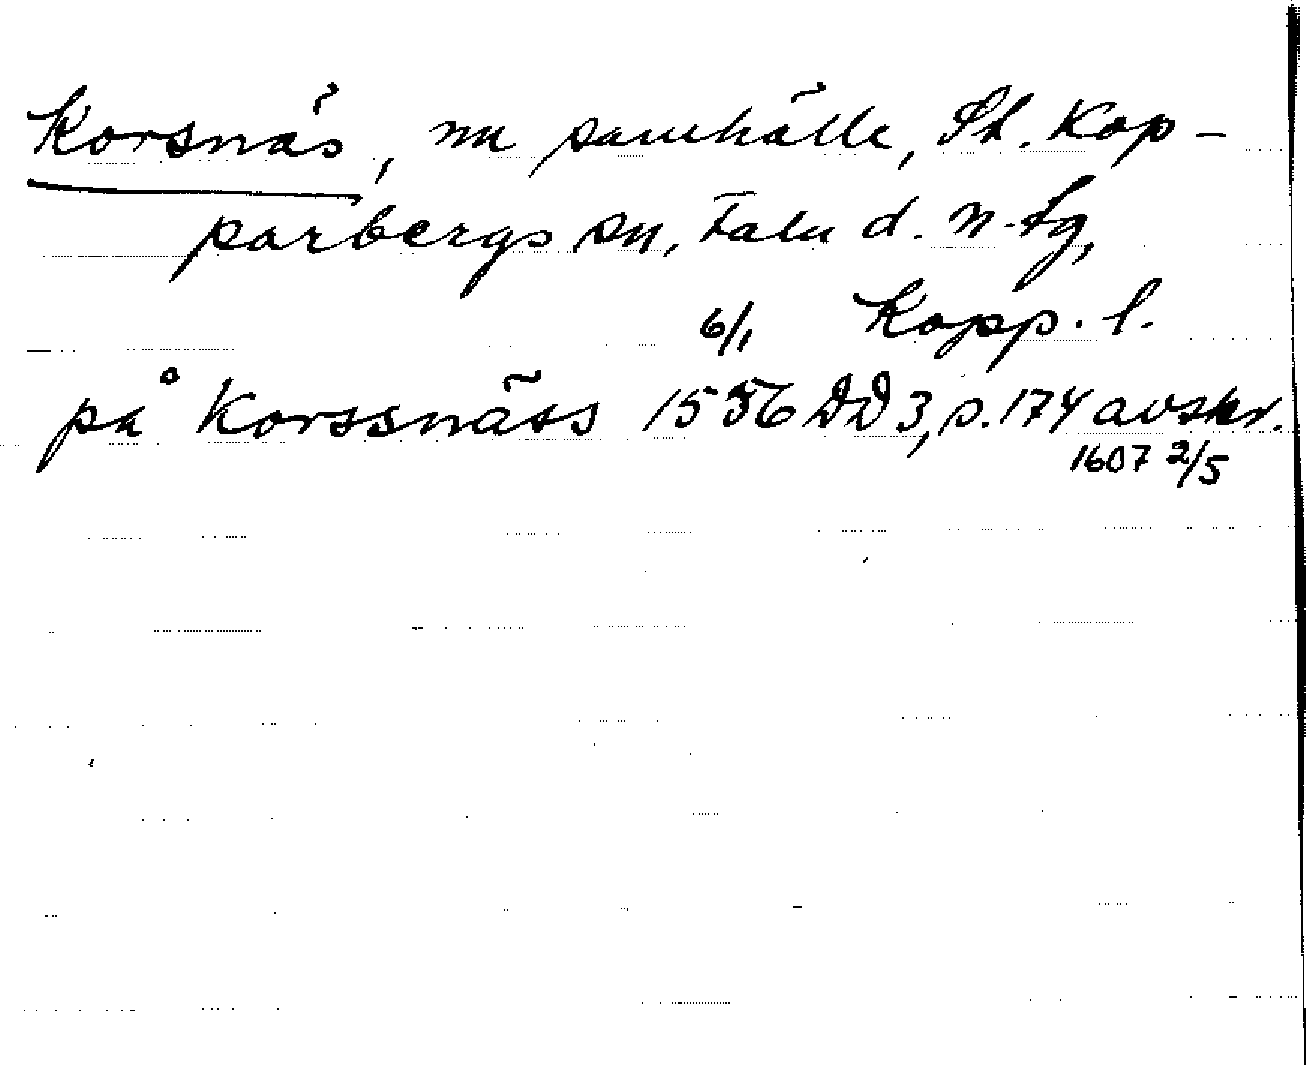 Korsnäs, nu samhälle, St. Kop-
parbergs sn, Falu d. n. tg,
Kopp. l.
på Korssnäss 1556 6/1 DD 3, s. 174 avskr.
1607 2/5